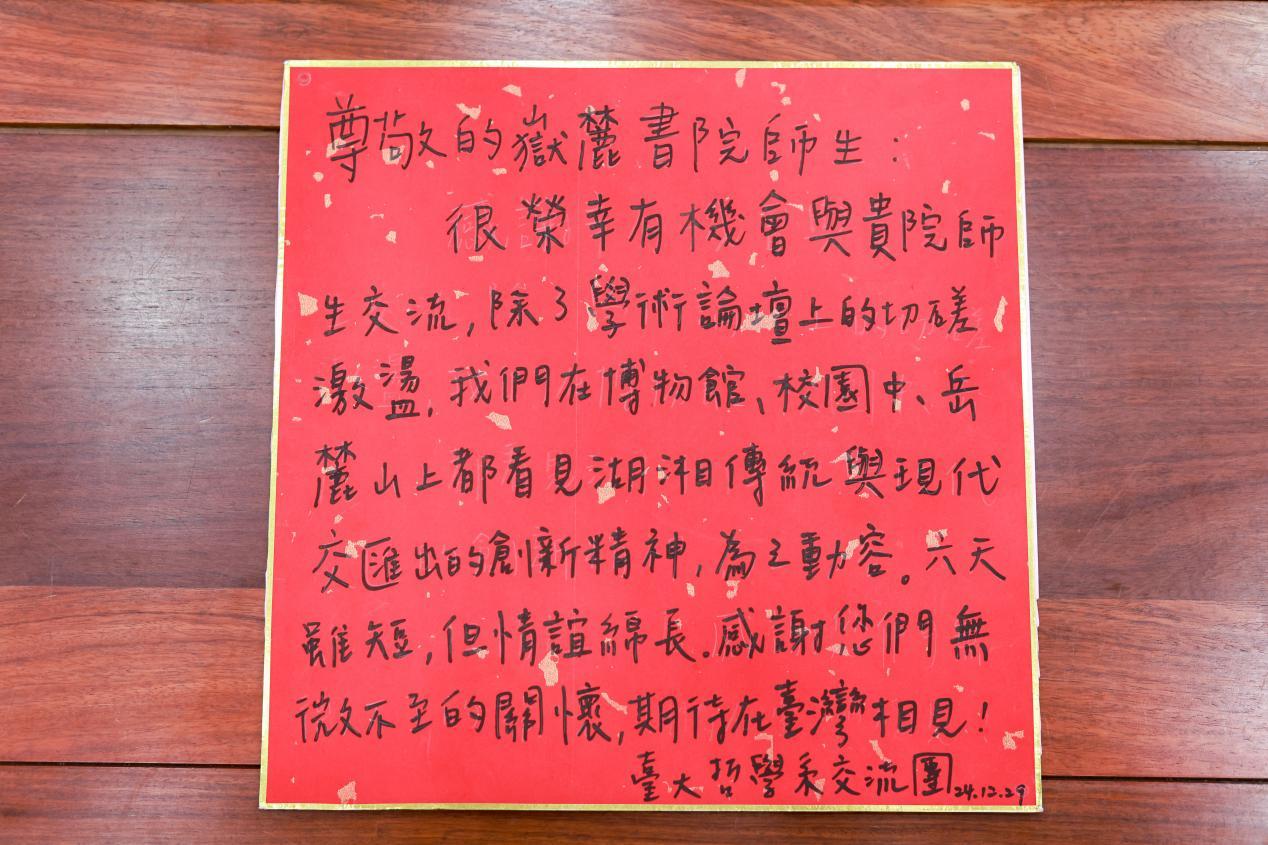 尊敬的嶽麓書院師生：
很榮幸有機會與貴院師
生交流，除了學術論壇上的切磋
激盪，我們在博物館、校園中、岳
麓山上都看見湖湘傳統與現代
交匯出的創新精神，為之動容。六天
雖短，但情誼綿長。感謝您們無
微不至的關懷，期待在臺灣相見！
臺大哲學系交流團24.12.29